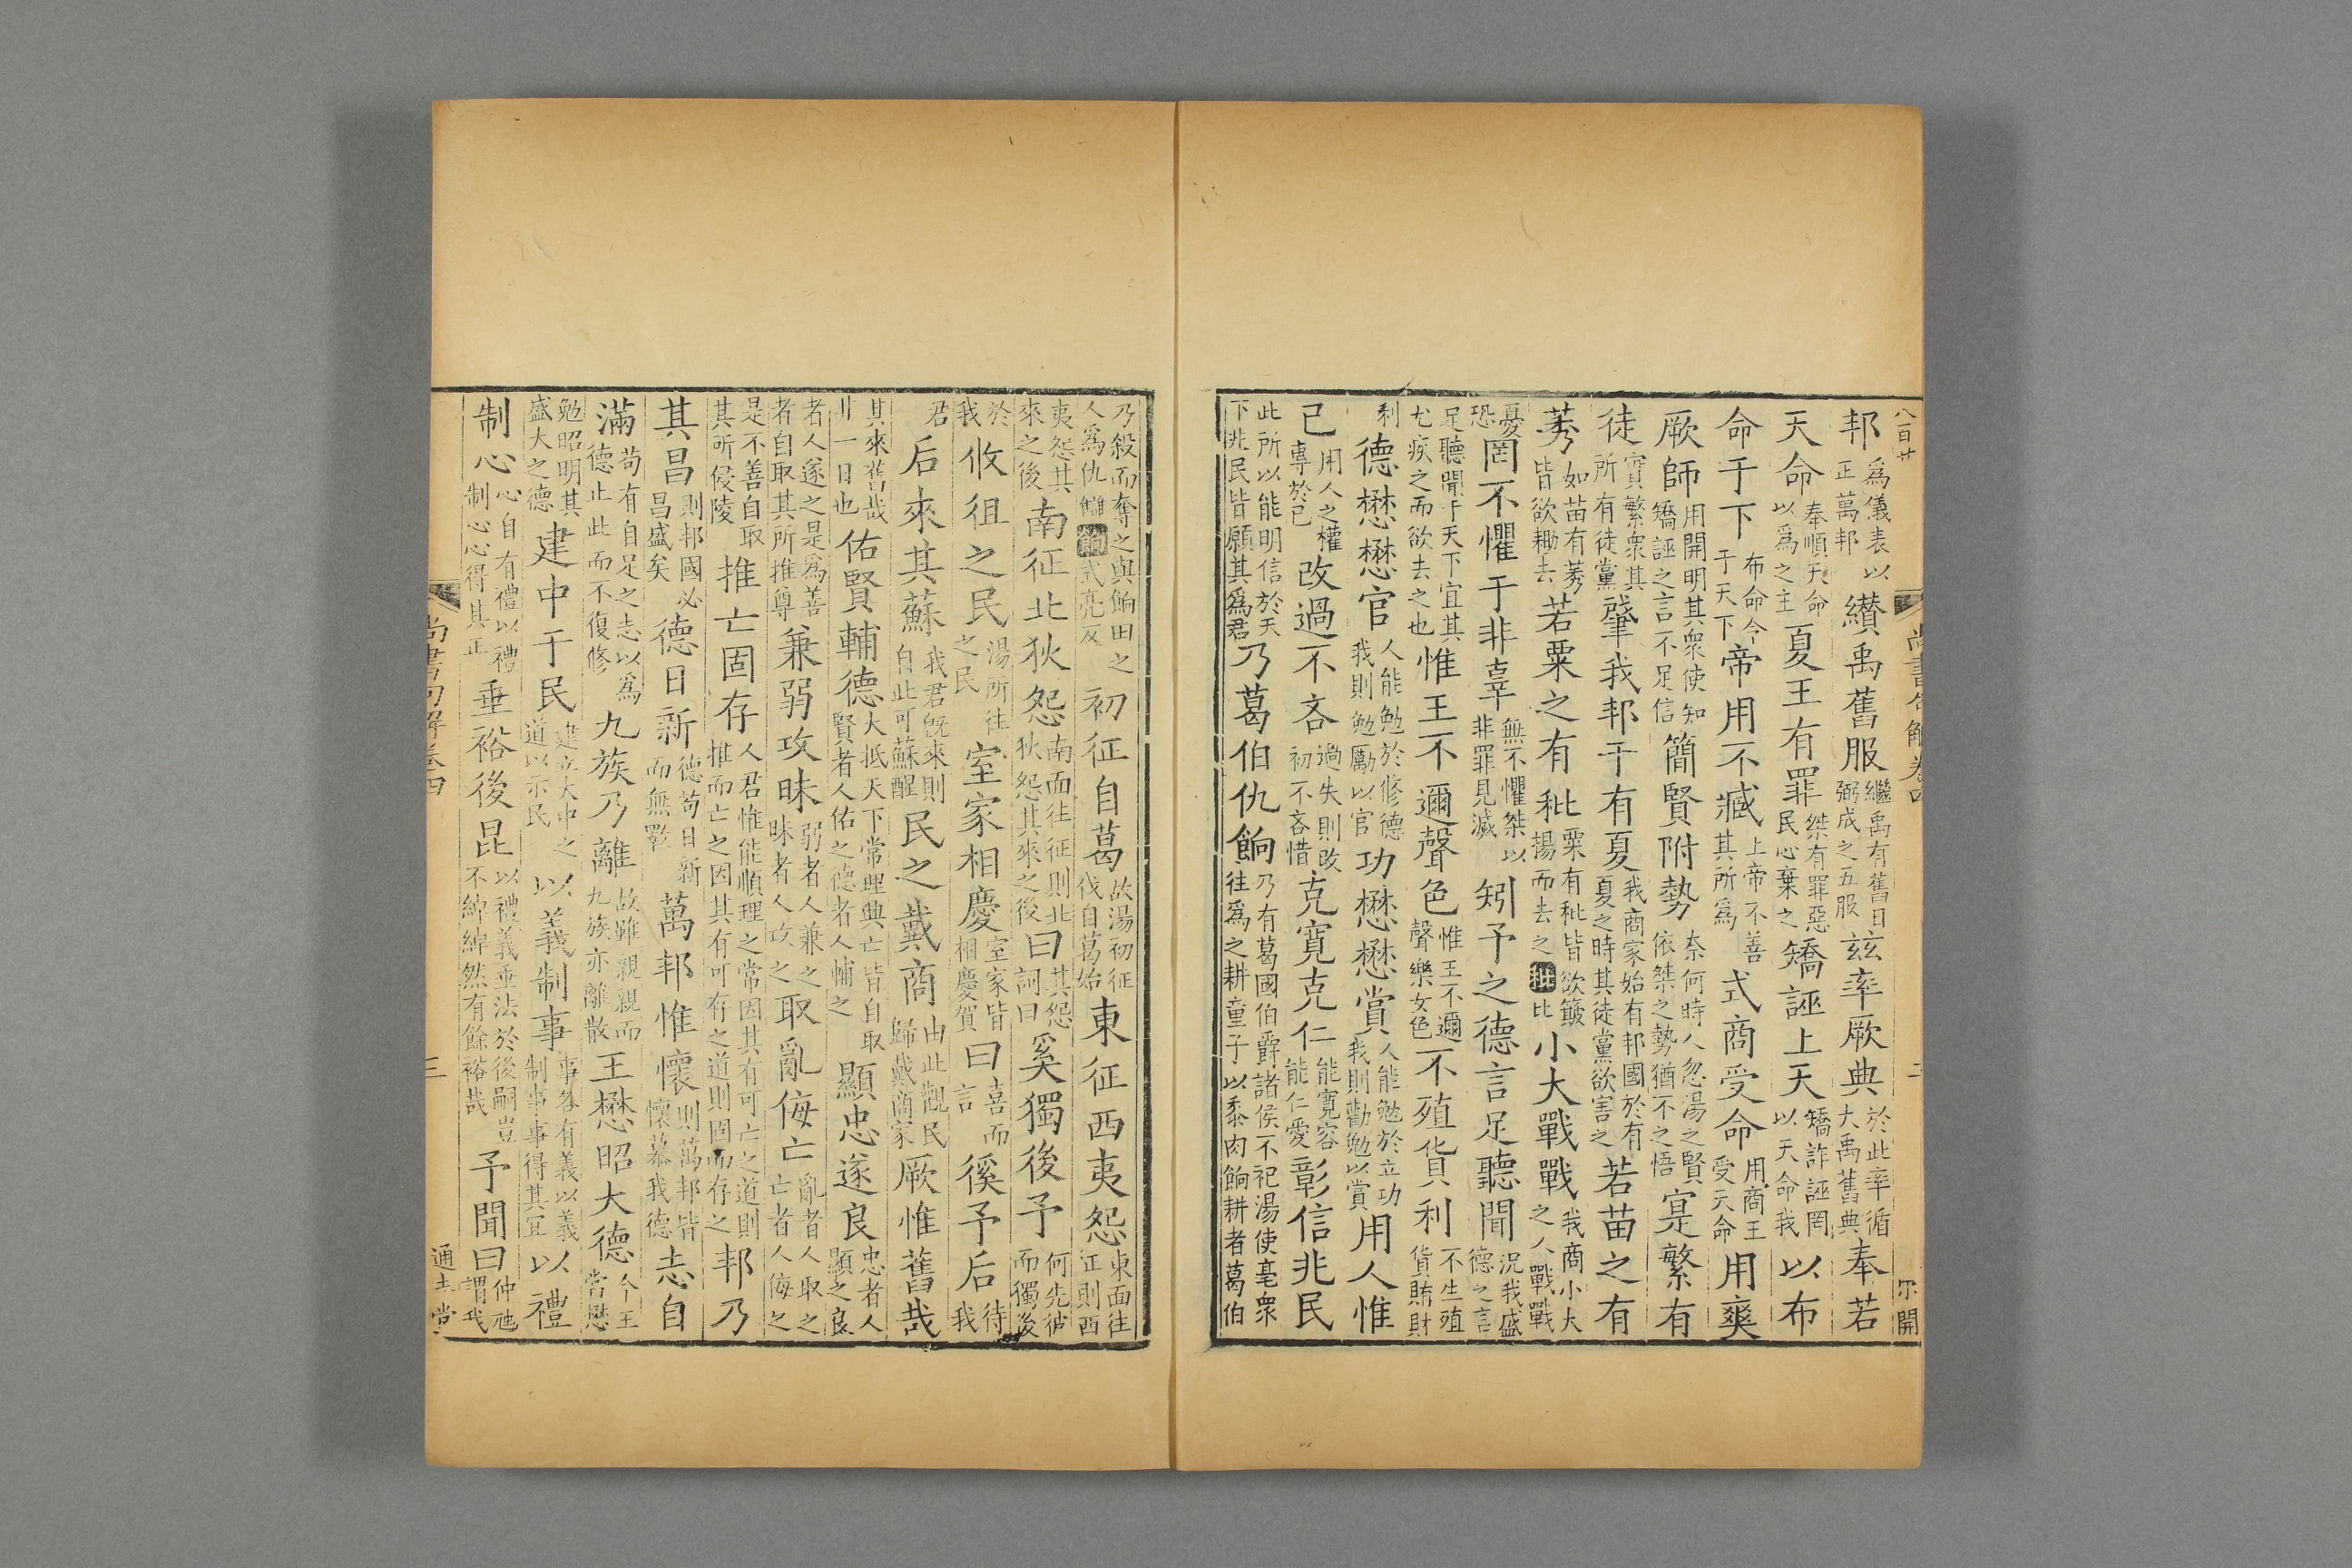 八百廿
尚書句解卷四
二
尔開
邦爲儀表以正萬邦纘禹舊服繼禹有舊日弼成之五服玆率厥典於此率循大禹舊典奉若
天命奉順天命以爲之主夏王有罪桀有罪惡民心棄之矯誣上天矯詐誣罔以天命我以布
命于下布命令于天下帝用不臧上帝不善其所爲式商受命用商王受天命用爽
厥師用開明其衆使知矯誣之言不足信簡賢附勢奈何時人忽湯之賢依桀之勢猶不之悟寔繁有
徒寔繁衆其所有徒黨肇我邦于有夏我商家始有邦國於有夏之時其徒黨欲害之若苗之有
莠如苗有莠皆欲耡去若粟之有秕粟有秕皆欲簸揚而去之秕比小大戰戰我商小大之人戰戰
憂恐罔不懼于非辜無不懼桀以非罪見滅矧予之德言足聽聞況我盛德之言
足聽聞于天下宜其尤疾之而欲去之也惟王不邇聲色惟王不邇聲樂女色不殖貨利不生殖貨賄財
利德懋懋官人能勉於修德我則勉厲以官功懋懋賞人能勉於立功我則勸勉以賞用人惟
己用人之權專於己改過不吝過失則改初不吝惜克寬克仁能寬容能仁愛彰信兆民
此所以能明信於天下兆民皆願其爲君乃葛伯仇餉乃有葛國伯爵諸侯不祀湯使亳衆往爲之耕童子以黍肉餉耕者葛伯
乃殺而奪之與餉田之人爲仇讎餉式亮反初征自葛故湯初征伐自葛始東征西夷怨東面往征則西
夷怨其來之後南征北狄怨南面往征則北狄怨其來之後曰其怨詞曰奚獨後予何先彼而獨後
於我攸徂之民湯所往之民室家相慶室家皆相慶慶賀曰喜而言徯予后待我
君后來其蘇我君旣來則自此可蘇醒民之戴商由此觀民歸戴商家厥惟舊哉
其來舊哉非一日也佑賢輔德大抵天下常理興亡皆自取賢者人佑之德者人輔之顯忠遂良忠者人顯之良
者人遂之是爲善者自取其所推尊兼弱攻昧弱者人兼之昧者人攻之取亂侮亡亂者人取之亡者人侮之
是不善自取其所侵陵推亡固存人君惟能順理之常因其有可亡之道則推而亡之因其有可存之道則固而存之邦乃
其昌則邦國必昌盛矣德日新德苟日新而無斁萬邦惟懷則萬邦皆懷慕我德志自
滿苟有自足之志以爲德止此而不復修九族乃離故雖親親而九族亦離散王懋昭大德今王當懋
勉昭明其盛大之德建中于民建立大中之道以示民以義制事事各有義以義制事事得其宜以禮
制心心自有禮以禮制心心得其正垂裕後昆以禮義垂法於後嗣豈不綽綽然有餘裕哉予聞曰仲虺謂我
尚書句解卷四
三
通志堂